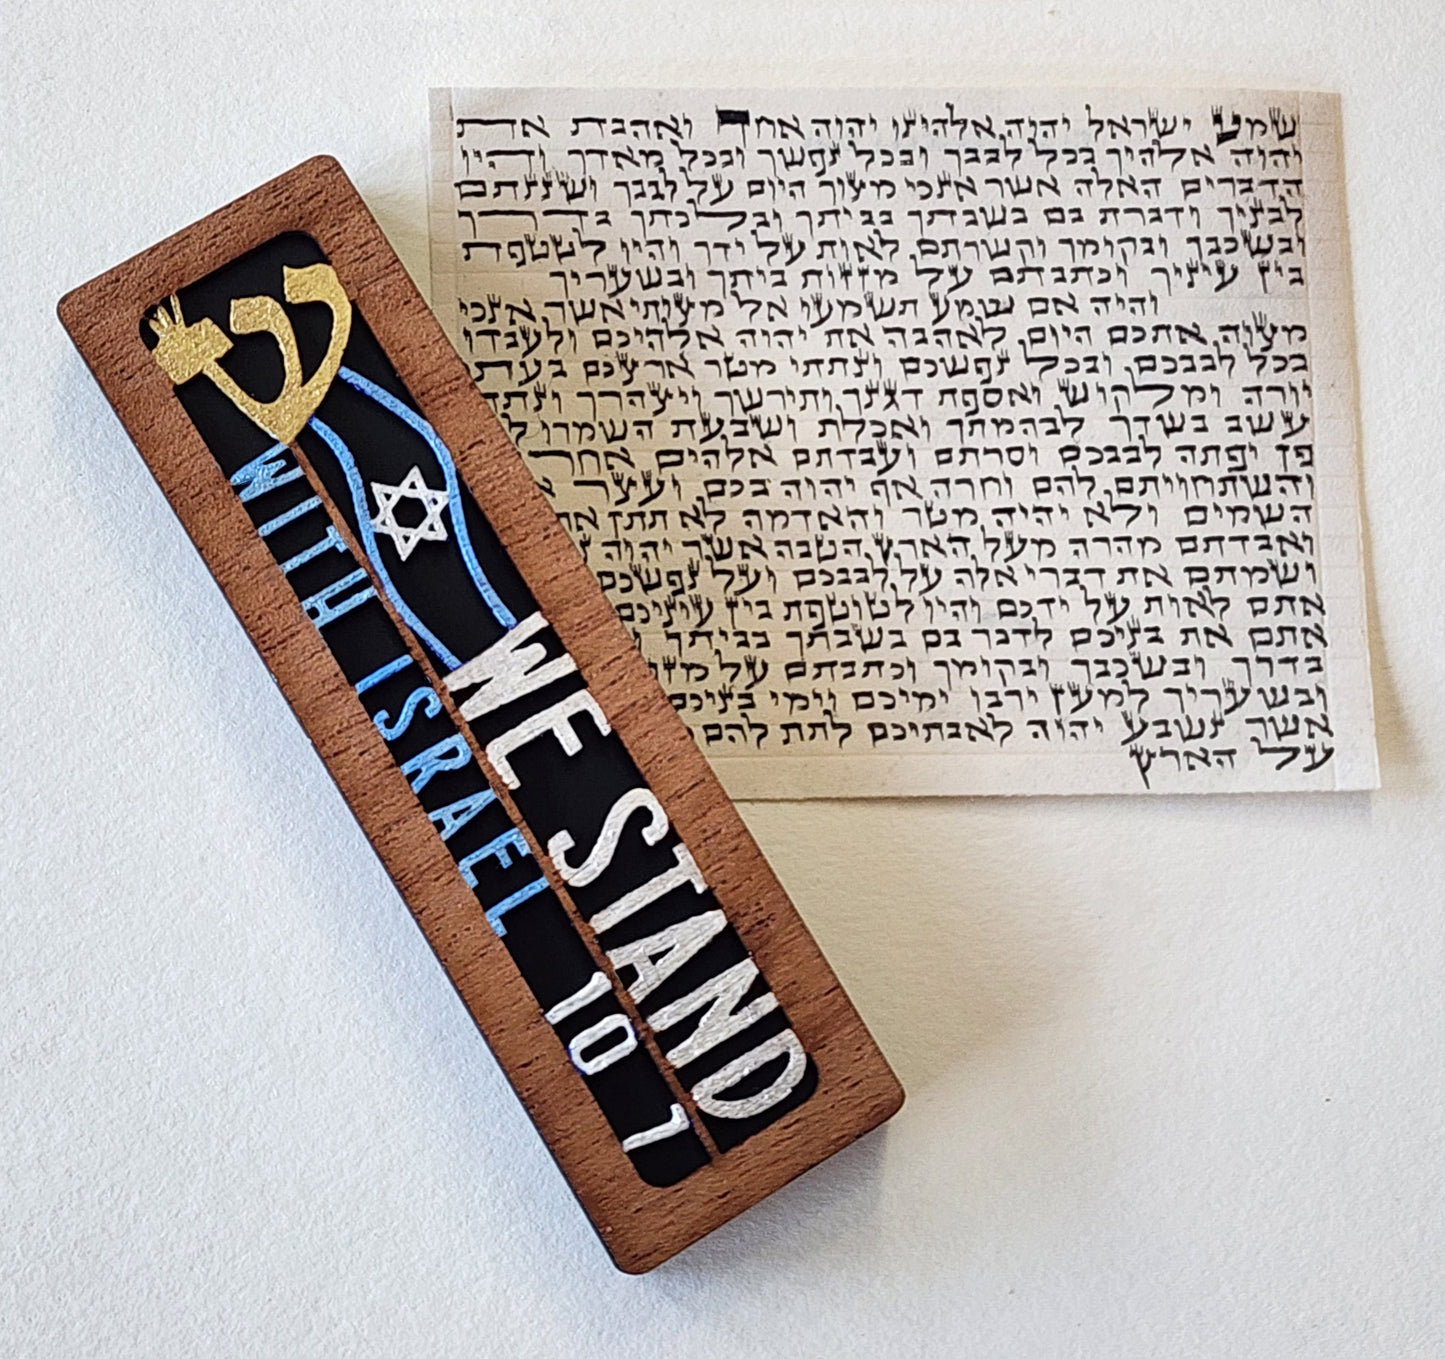 ש
WE STAND
WITH ISRAEL
10 7
שמע ישראל יהוה אלהינו יהוה אחד ואהבת את
יהוה אלהיך בכל לבבך ובכל נפשך ובכל מאדך והיו
הדברים האלה אשר אנכי מצוך היום על לבבך ושננתם
לבניך ודברת בם בשבתך בביתך ובלכתך בדרך
ובשכבך ובקומך וקשרתם לאות על ידך והיו לטטפת
בין עיניך וכתבתם על מזזות ביתך ובשעריך
והיה אם שמע תשמעו אל מצותי אשר אנכי
מצוה אתכם היום לאהבה את יהוה אלהיכם ולעבדו
בכל לבבכם ובכל נפשכם ונתתי מטר ארצכם בעת
יורה ומלקוש ואספת דגנך ותירשך ויצהרך
עשב בשדך לבהמתך ואכלת ושבעת השמרו
פן יפתה לבבכם וסרתם ועבדתם אלהים
והשתחויתם להם וחרה אף יהוה בכם ועצר
השמים ולא יהיה מטר והאדמה לא תתן את
ואבדתם מהרה מעל הארץ הטבה אשר יהוה
ושמתם את דברי אלה על לבבכם ועל נפשכם
אתם לאות על ידכם והיו לטוטפת בין עיניכם
אתם את בניכם לדבר בם בשבתך בביתך
בדרך ובשכבך ובקומך וכתבתם על
ובשעריך למען ירבו ימיכם וימי בניכם
אשר נשבע יהוה לאבתיכם לתת להם
על הארץ